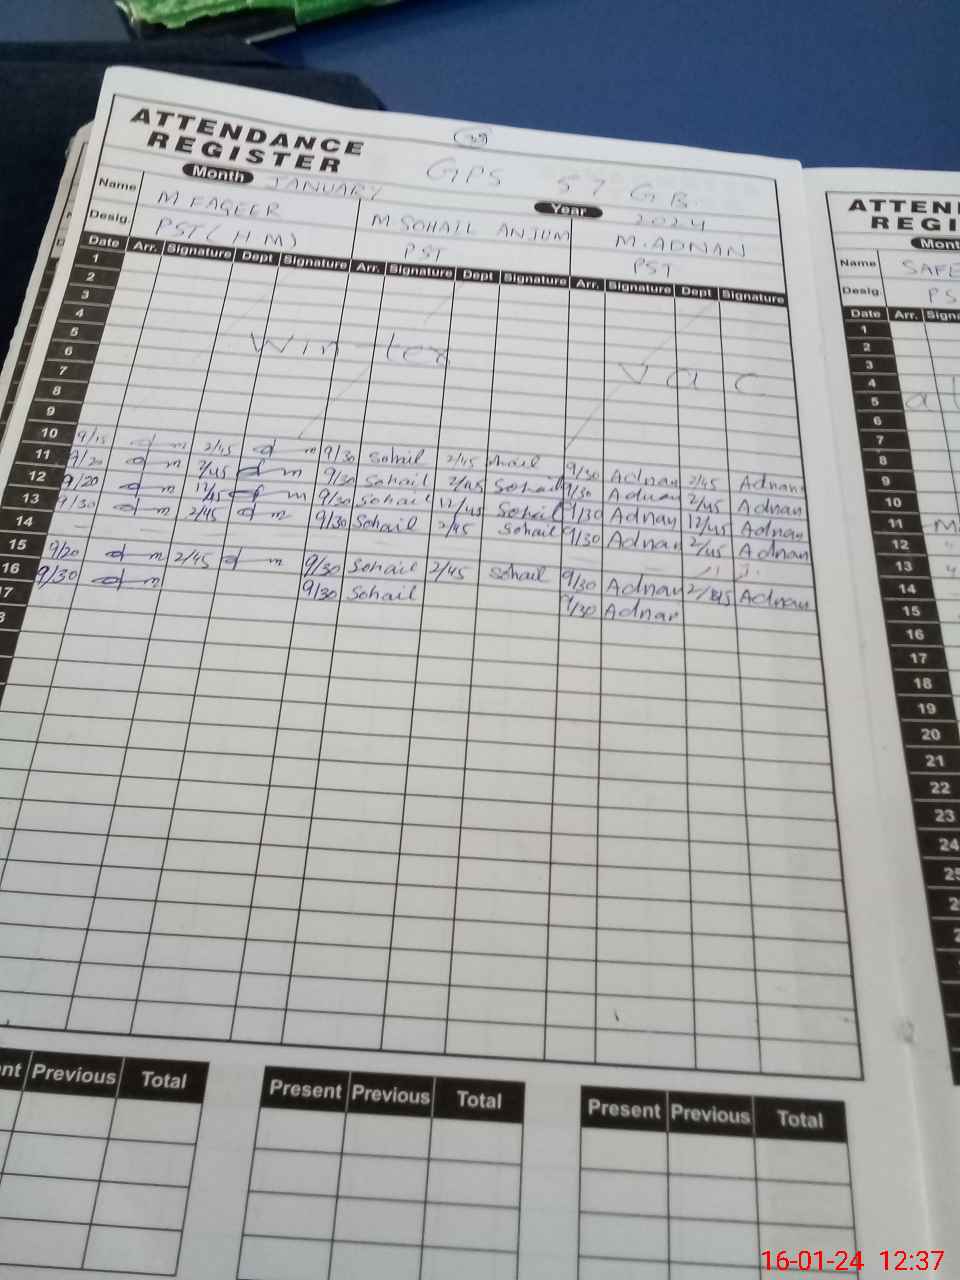 (39)
ATTENDANCE REGISTER
GPS 57 G.B.
Month JANUARY Year 2024
Name M FAQEER M SOHAIL ANJUM M. ADNAN
Desig. PST (H M) PST PST
Date Arr. Signature Dept Signature Arr. Signature Dept Signature Arr. Signature Dept Signature
1
2
3
4
5
6
7
8
9
Winter Vac
10 9/15 2/45 9/30 Sohail 2/45 Sohail 9/30 Adnan 2/45 Adnan
11 9/20 2/45 9/30 Sohail 2/45 Sohail 9/30 Adnan 2/45 Adnan
12 9/20 12/45 9/30 Sohail 12/45 Sohail 9/30 Adnan 12/45 Adnan
13 9/30 2/45 9/30 Sohail 2/45 Sohail 9/30 Adnan 2/45 Adnan
14
15 9/20 2/45 9/30 Sohail 2/45 Sohail 9/30 Adnan 2/45 Adnan
16 9/30 9/30 Sohail 9/30 Adnan
17
Previous Total
Present Previous Total
Present Previous Total
ATTEN
REG
Mont
Name SAFE
Desig. PS
Date Arr. Signa
1
2
3
4
5
6
7
8
9
10
11
12
13
14
15
16
17
18
19
20
21
22
23
24
25
16-01-24 12:37